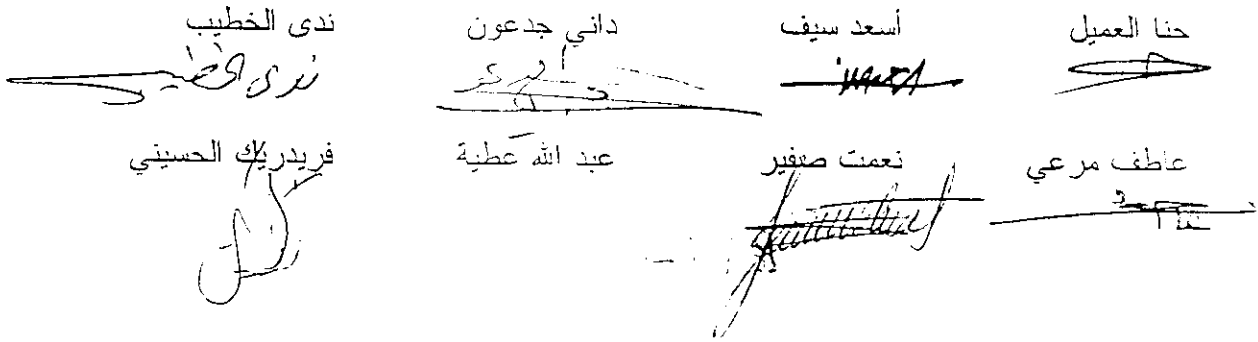 حنا العميل أسعد سيف داني جدعون ندى الخطيب
ندى الخطيب
عاطف مرعي نعمت صفير عبد الله عطية فريدريك الحسيني